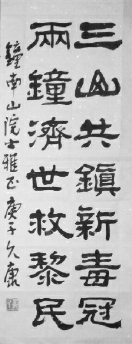 三山共鎮新毒冠
兩鐘濟世救黎民
鐘南山院士雅正 庚子久康